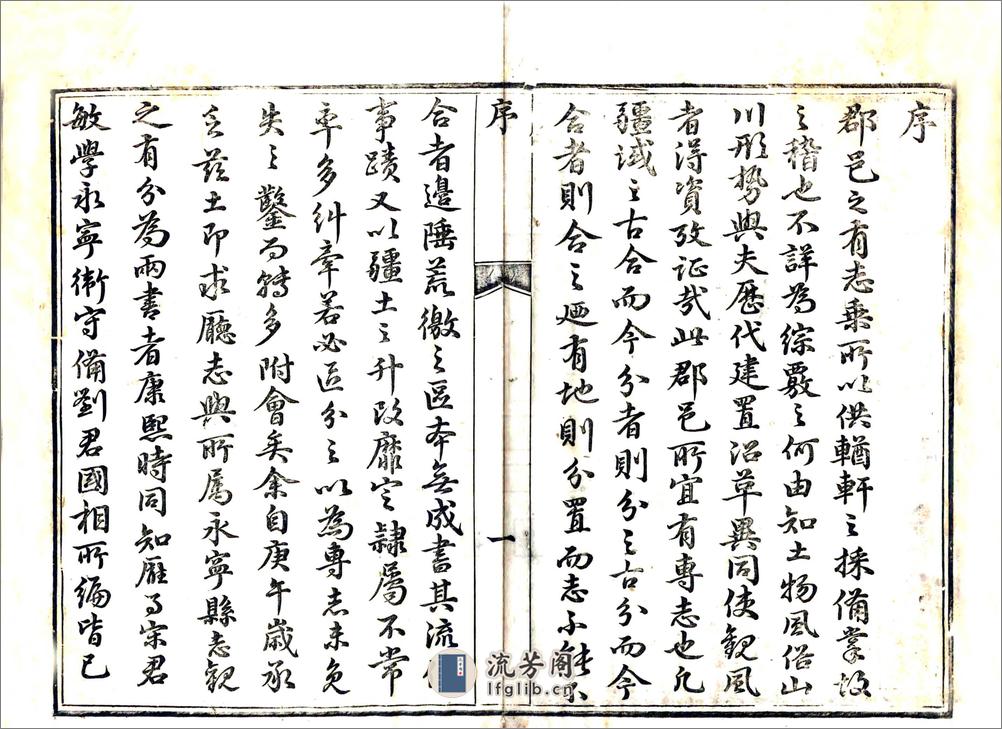 序
郡邑之有志乗所以供輶軒之採備掌故
之稽也不詳為綜覈之何由知土物風俗山
川形勢與夫歷代建置沿革異同使觀風
者得資攷证哉此郡邑所宜有專志也凡
疆域之古合而今分者則分之古分而今
合者則合之廼有地則分置而志不能不
合者邊陲荒徼之區本無成書其流
事蹟又以疆土之升改靡定隷屬不常
率多糾牽若必區分之以為專志未免
失之鑿而轉多附會矣余自庚午歲承
乏茲土即求廳志與所属永寧縣志觀
之有分為兩書者康熙時同知雁君宋君
敏學永寧衛守備劉君國相所編皆已
序
一
流芳阁
lfglib.cn